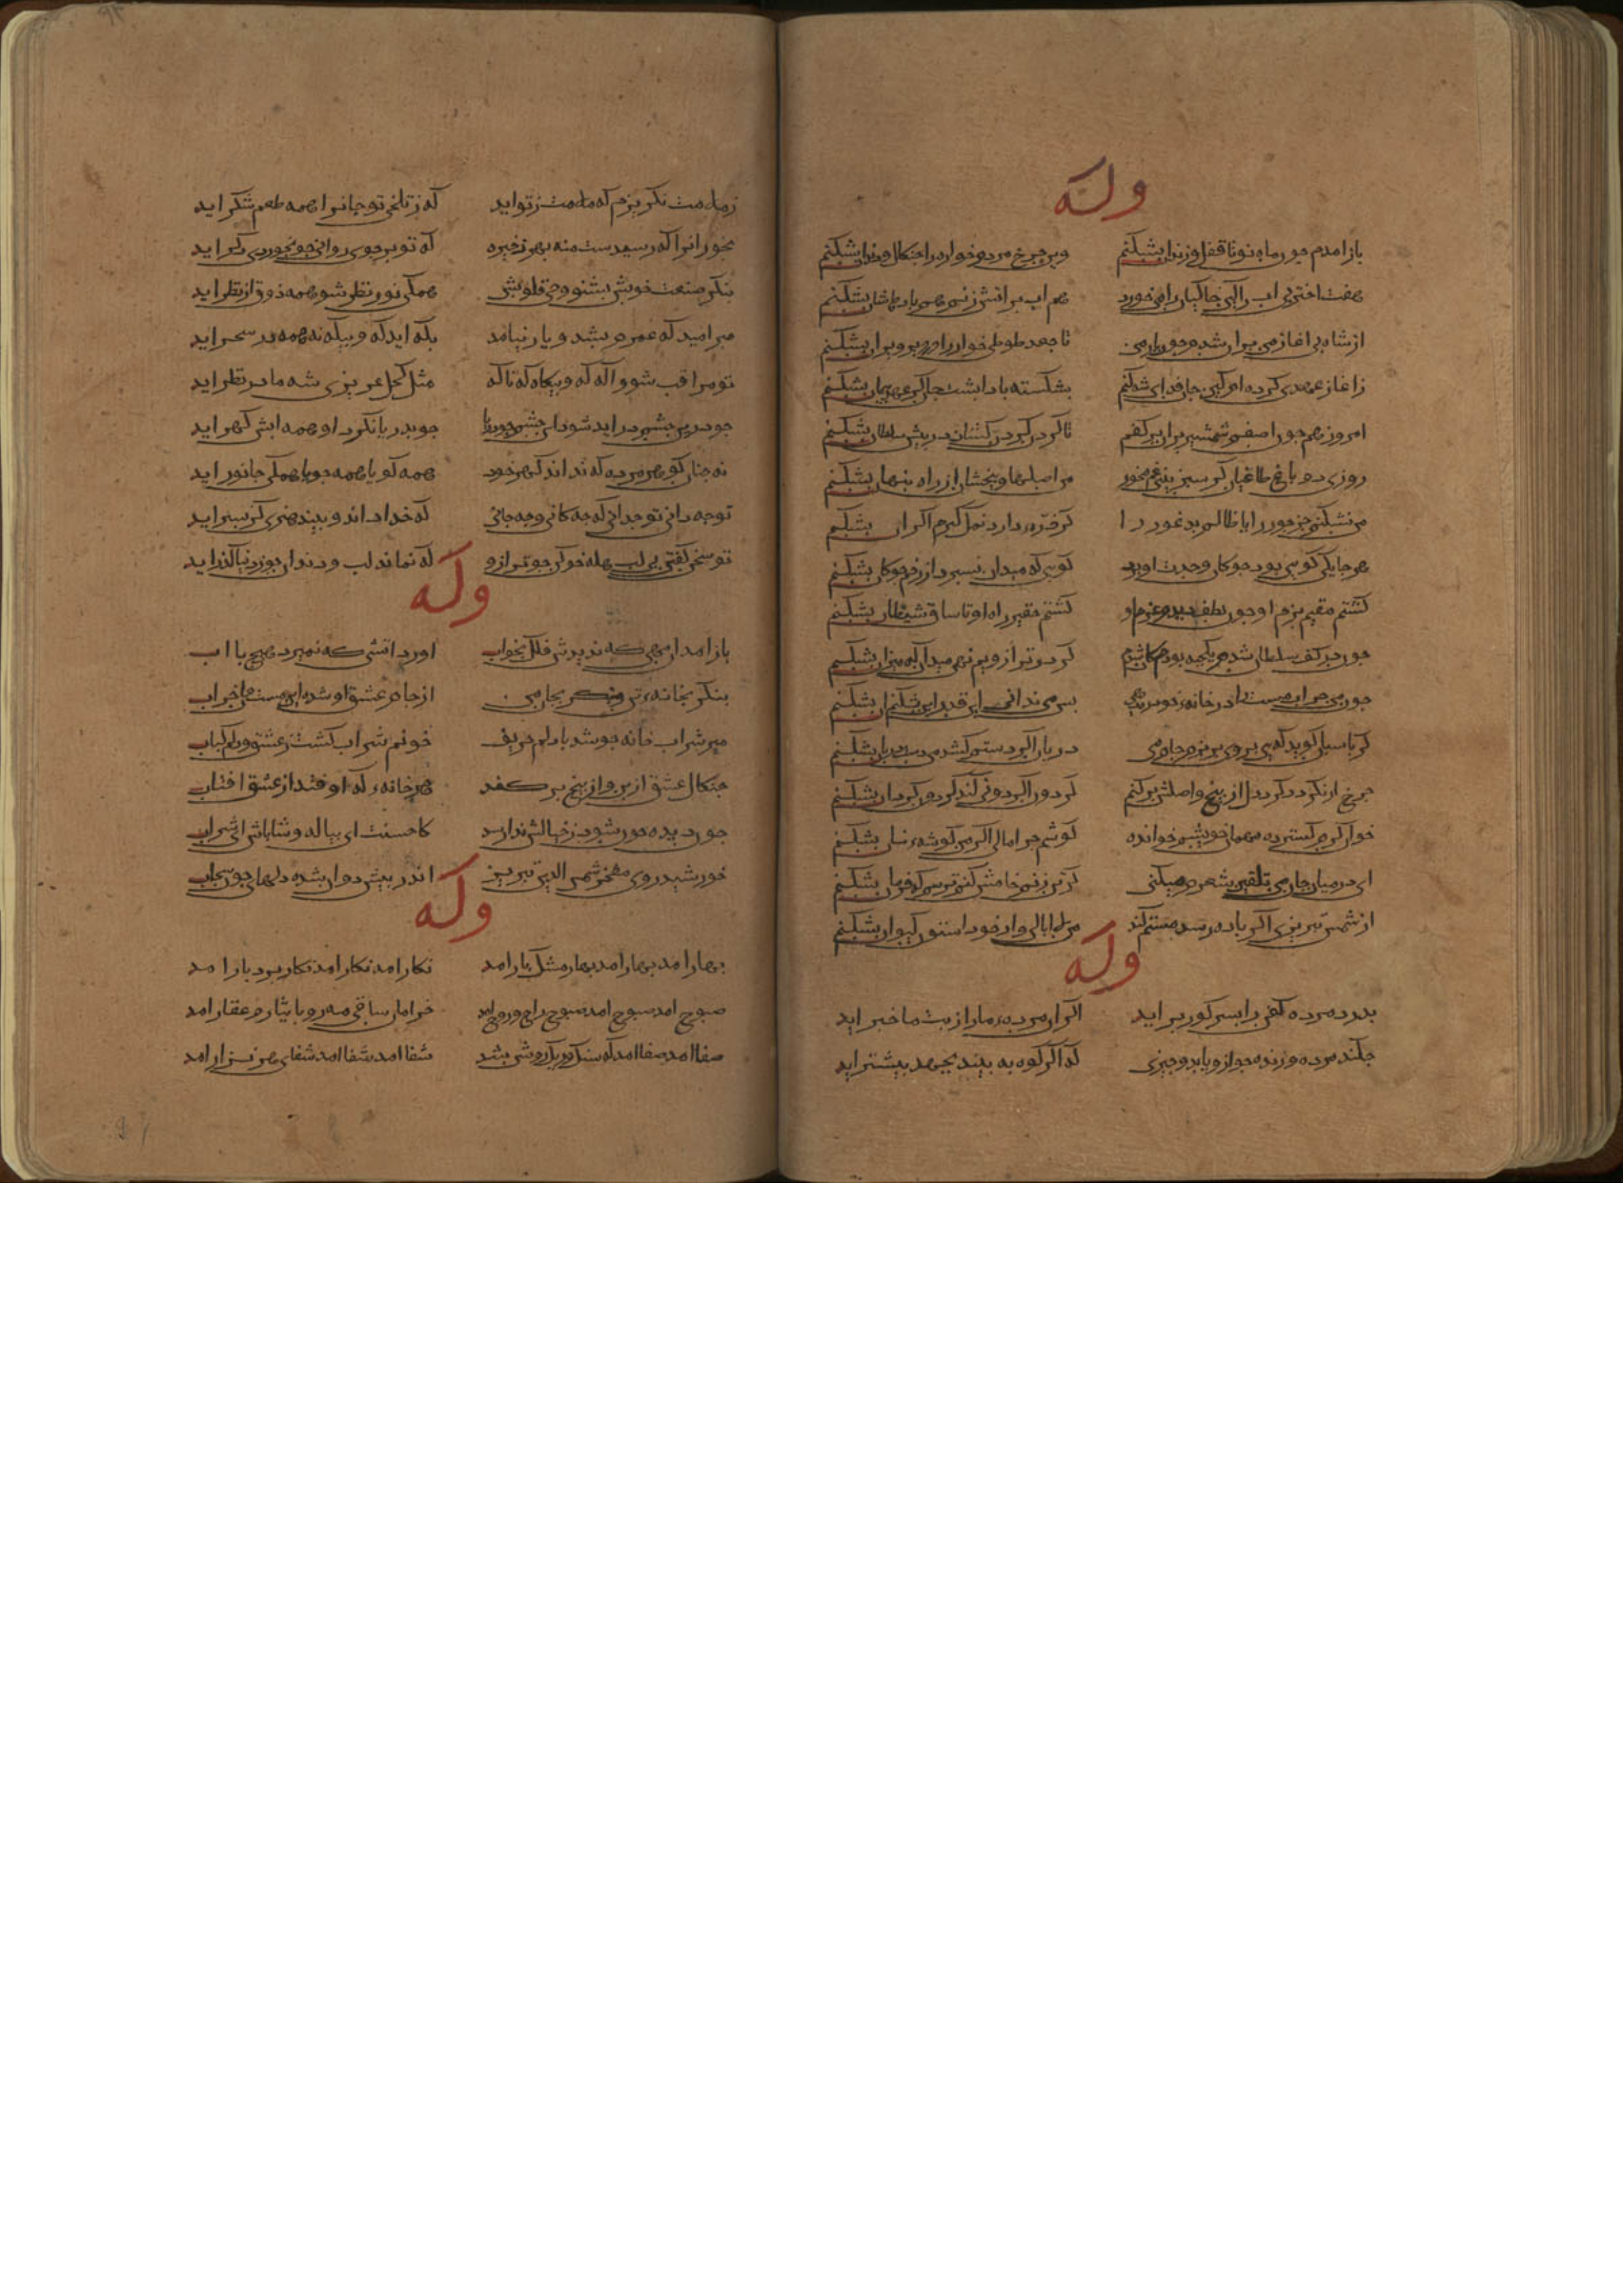 وله
باز امدم جون ماه نو تا قفل و زندان بشکنم وین جرخ مردم خوار را جنکال و دندان بشکنم
هفت اختر بی اب را کین خاکیان را می خورد هم اب بر اتش زنم هم بادهاشان بشکنم
از شاه بی اغاز من بران شدم جون باز من تا جغد طوطی خوار را در دیر ویران بشکنم
زاغاز عهدی کرده ام کین جان فدای شه کنم بشکسته بادا بشت جان کر عهد و بیمان بشکنم
امروز هم جون اصفم شمشیر بران در کفم تا کردن کردن کشان در بیش سلطان بشکنم
روزی دو باغ طاغیان کر سبز بینی غم مخور من اصلهاو بیخشان از راه بنهان بشکنم
من نشکنم جز جور را یا ظالم بد غور را کر ذره دارد نمک کبرم اکر ان بشکنم
هر جا یکی کویی بود جوکان وحدت او برد کویی که میدان نسبرد از زخم جوکان بشکنم
کشتم مقیم بزم او جون لطف دیدم عزم او کشتم حقیر راه او تا ساق شیطان بشکنم
جون در کف سلطان شدم یکحبه بودم کان شدم کر در ترازویم نهی میدان که میزان بشکنم
جون من خراب مست را در خانه خود ره دهی بس می ندانی این قدر این بشکنم ان بشکنم
کر باسبان کوید که هی بر وی بریزم جام می دربان اکر دستم کشد من دست دربان بشکنم
جرخ ار نکردد کرد دل از بیخ و اصلش بر کنم کر دور اکر دونی کند کردون کردان بشکنم
خوان کرم کسترده مهمان خویشم خوانده کوشم جرا مالی اکر من کوشه نان بشکنم
ای در میان جان من تلقین شعرم میکنی کر تن زنم خامش کنم ترسم که فرمان بشکنم
از شمس تبریزی اکر باده رسد مستم کند من لاابالی وار خود استون کیوان بشکنم
وله
بدرد مرده کفن را بسر کور بر اید اکر ان مرده ما را ز بت ما خبر اید
جکند مرده و زنده جو ازو یابد و جیزی که اکر کوه به بیند بجهد بیشتر اید
ز ملامت نکریزم که ملامت ز تو اید که ز تلخی تو جانرا همه طعم شکر اید
بخور انرا که رسیدست منه بهر ذخیره که تو بر جوی روانی جو بخوردی دکر اید
بنکر صنعت خوبش بشنو وحی قلوبش همکی نور نظر شو همه ذوق از نظر اید
مبر امید که عمرم بشد و یار نیامد بکه اید که و بیکه نه همه در سحر اید
تو مراقب شو و اکه که و بیکاه که ناکه مثل کحل عزیزی شه ما در نظر اید
جو درین جشم در اید شود این جشم جو دریا جو بدریا نکرد او همه ابش کهر اید
نه جنان کوهر مرده که نداند کهر خود همه کویا همه جویا همکی جانور اید
توجه دانی توجه دانی که جه کانی وجه جانی که خدا داند و بیند هنری کز بشر اید
تو سخن کفتن بی لب هله خو کن جو ترازو که نماند لب و دندان جو ز دنیا کذر اید
وله
باز امد ان مهی که ندیدش فلک بخواب اورد اتشی که نمیرد بهیچ با اب
بنکر بخانه تن و بنکر بجان من از جام عشق او شده این مست و ان خراب
میر شراب خانه جو شد با دلم حریف خونم شراب کشت ز عشق و دلم کباب
جنکال عشق از بن و از بیخ بر کفد هر خانه که او فتد از عشق افتاب
جون دیده جون شود ز خیالش ندا رسد کاحسنت ای بیاله و شاباش ای شراب
خورشید روی مفخر شمس الدین تبریز اندر بیش دوان شده دلهای جون سحاب
وله
بهار امد بهار امد بهار مشک بار امد نکار امد نکار امد نکار بردبار امد
صبوح امد صبوح امد صبوح راح و روح امد خرامان ساقی مه رو بایثار عقار امد
صفا امد صفا امد که سنک و ریک روشن شد شفا امد شفا امد شفای هر نزار امد